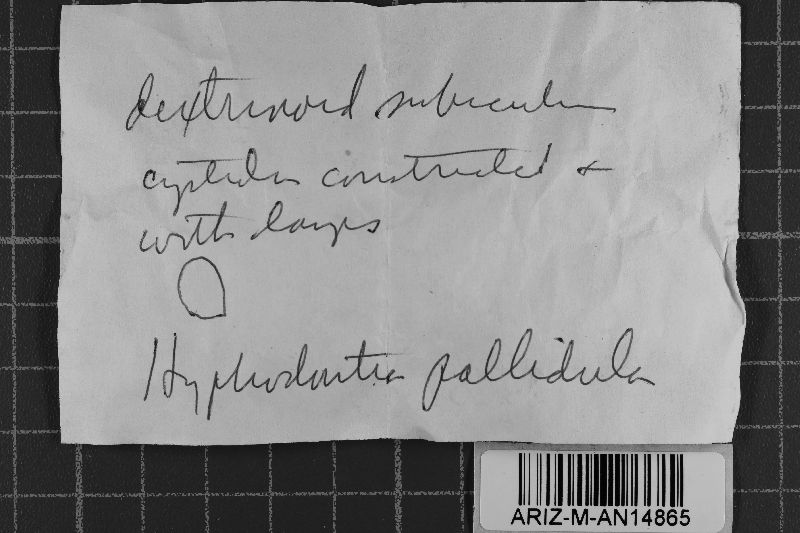 dextrinoid subiculum
cystidia constricted +
with lamps
Hyphodontia pallidula
ARIZ-M-AN14865